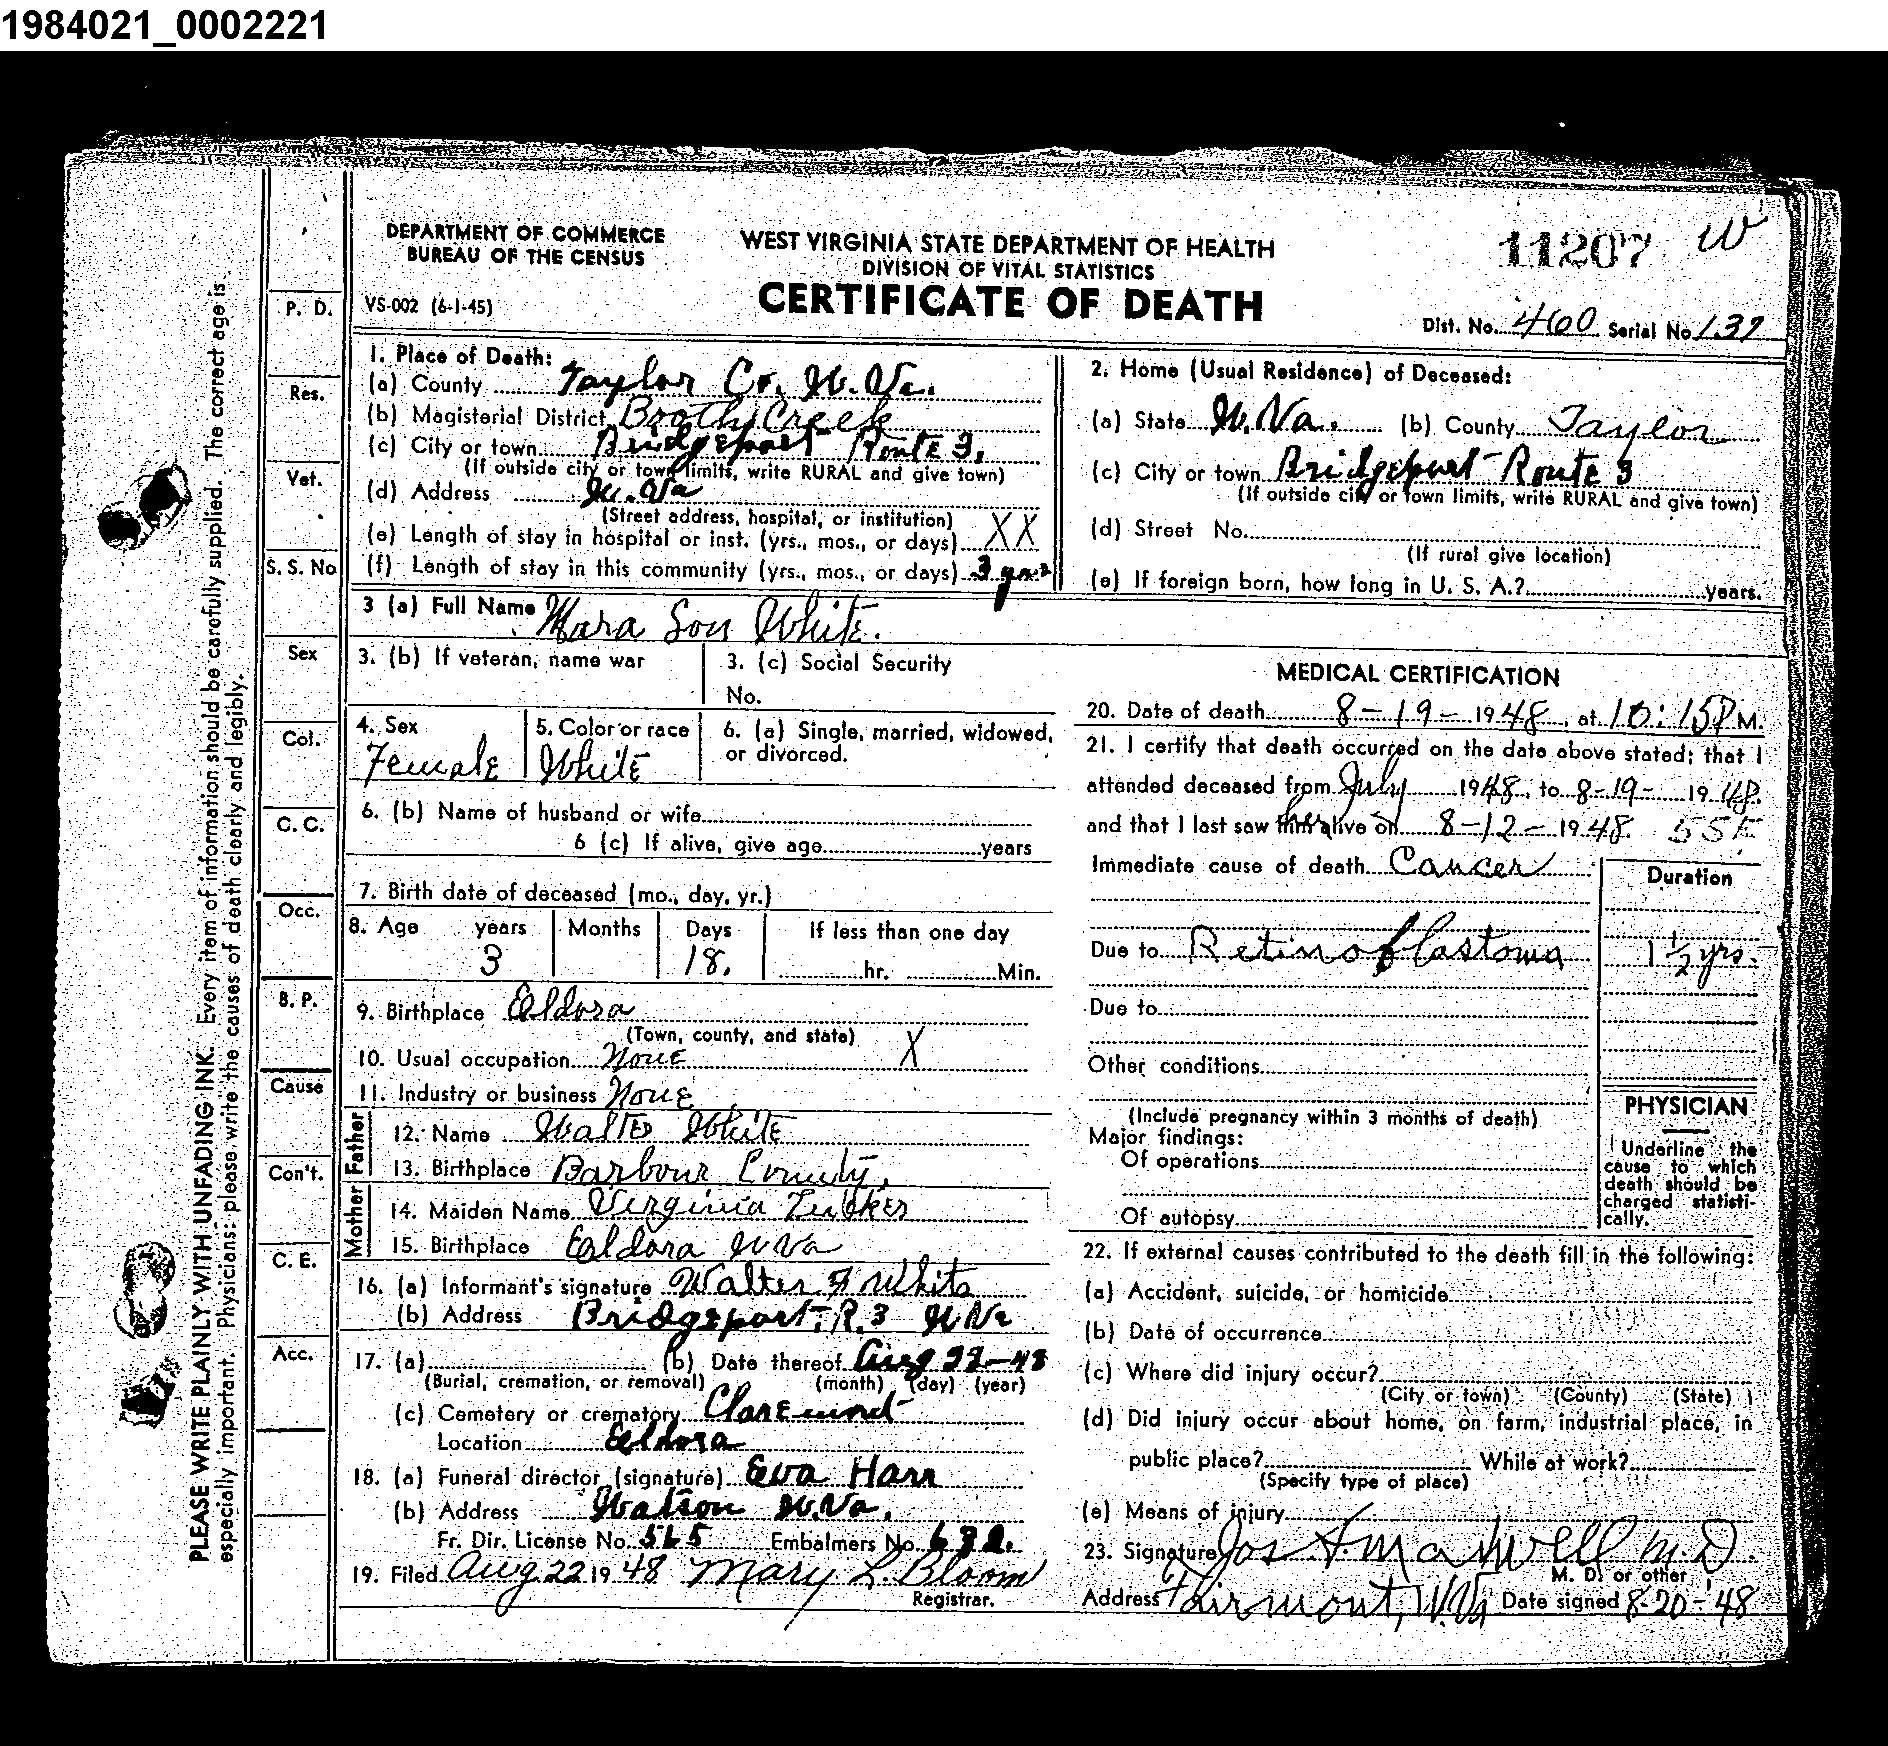 1984021_0002221
DEPARTMENT OF COMMERCE
BUREAU OF THE CENSUS
WEST VIRGINIA STATE DEPARTMENT OF HEALTH
DIVISION OF VITAL STATISTICS
CERTIFICATE OF DEATH
11207 W
VS-002 (6-1-45)
Dist. No. 460 Serial No. 137
1. Place of Death:
(a) County Taylor Co. W. Va.
(b) Magisterial District Booth Creek
(c) City or town Bridgeport Route 3.
(If outside city or town limits, write RURAL and give town)
(d) Address W. Va
(Street address, hospital, or institution)
(e) Length of stay in hospital or inst. (yrs., mos., or days) XX
(f) Length of stay in this community (yrs., mos., or days) 3 yrs
2. Home (Usual Residence) of Deceased:
(a) State W. Va. (b) County Taylor
(c) City or town Bridgeport Route 3
(If outside city or town limits, write RURAL and give town)
(d) Street No.
(If rural give location)
(e) If foreign born, how long in U. S. A.? years.
3 (a) Full Name Mara Sou White.
3. (b) If veteran, name war
3. (c) Social Security
No.
4. Sex
Female
5. Color or race
White
6. (a) Single, married, widowed,
or divorced.
6. (b) Name of husband or wife
6 (c) If alive, give age years
7. Birth date of deceased (mo., day, yr.)
8. Age years Months Days If less than one day
3 18. hr. Min.
9. Birthplace Eldora
(Town, county, and state)
10. Usual occupation None X
11. Industry or business None
Father
12. Name Walter White
13. Birthplace Barbour County.
Mother
14. Maiden Name Virginia
15. Birthplace Eldora W Va
16. (a) Informant's signature Walter F White
(b) Address Bridgeport. R.3 W Va
17. (a) (b) Date thereof Aug 22-48
(Burial, cremation, or removal) (month) (day) (year)
(c) Cemetery or crematory Claremont
Location Eldora
18. (a) Funeral director (signature) Eva Harr
(b) Address Watson W. Va.
Fr. Dir. License No. 565 Embalmers No.
19. Filed Aug 22 1948 Mary L. Bloom
Registrar.
MEDICAL CERTIFICATION
20. Date of death 8-19-1948, at 10:15 P M.
21. I certify that death occurred on the date above stated; that I
attended deceased from July 1948, to 8-19- 1948.
and that I last saw him her alive on 8-12-1948. 55E
Immediate cause of death Cancer
Duration
Due to Retinoblastoma 1 1/2 yrs.
Due to
Other conditions
(Include pregnancy within 3 months of death)
Major findings:
Of operations
Of autopsy
PHYSICIAN
Underline the
cause to which
death should be
charged statisti-
cally.
22. If external causes contributed to the death fill in the following:
(a) Accident, suicide, or homicide
(b) Date of occurrence
(c) Where did injury occur?
(City or town) (County) (State)
(d) Did injury occur about home, on farm, industrial place, in
public place? While at work?
(Specify type of place)
(e) Means of injury
23. Signature Jos. F. Maxwell M.D.
M. D. or other
Address Fairmont, W. Va Date signed 8-20-'48
P. D.
Res.
Vet.
S. S. No
Sex
Col.
C. C.
Occ.
B. P.
Cause
Con't.
C. E.
Acc.
PLEASE WRITE PLAINLY WITH UNFADING INK. Every item of information should be carefully supplied. The correct age is
especially important. Physicians: please write the causes of death clearly and legibly.